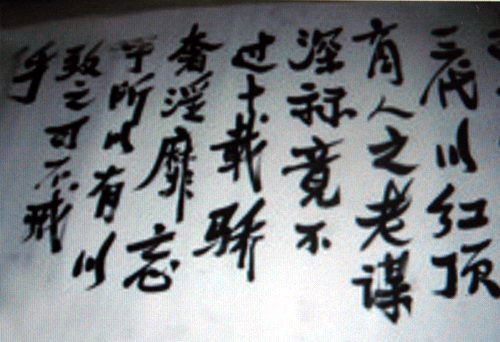 三代以红顶
商人之老谋
深算竟不
过十载骄
奢淫靡忘
乎所以有以
致之可不戒
乎